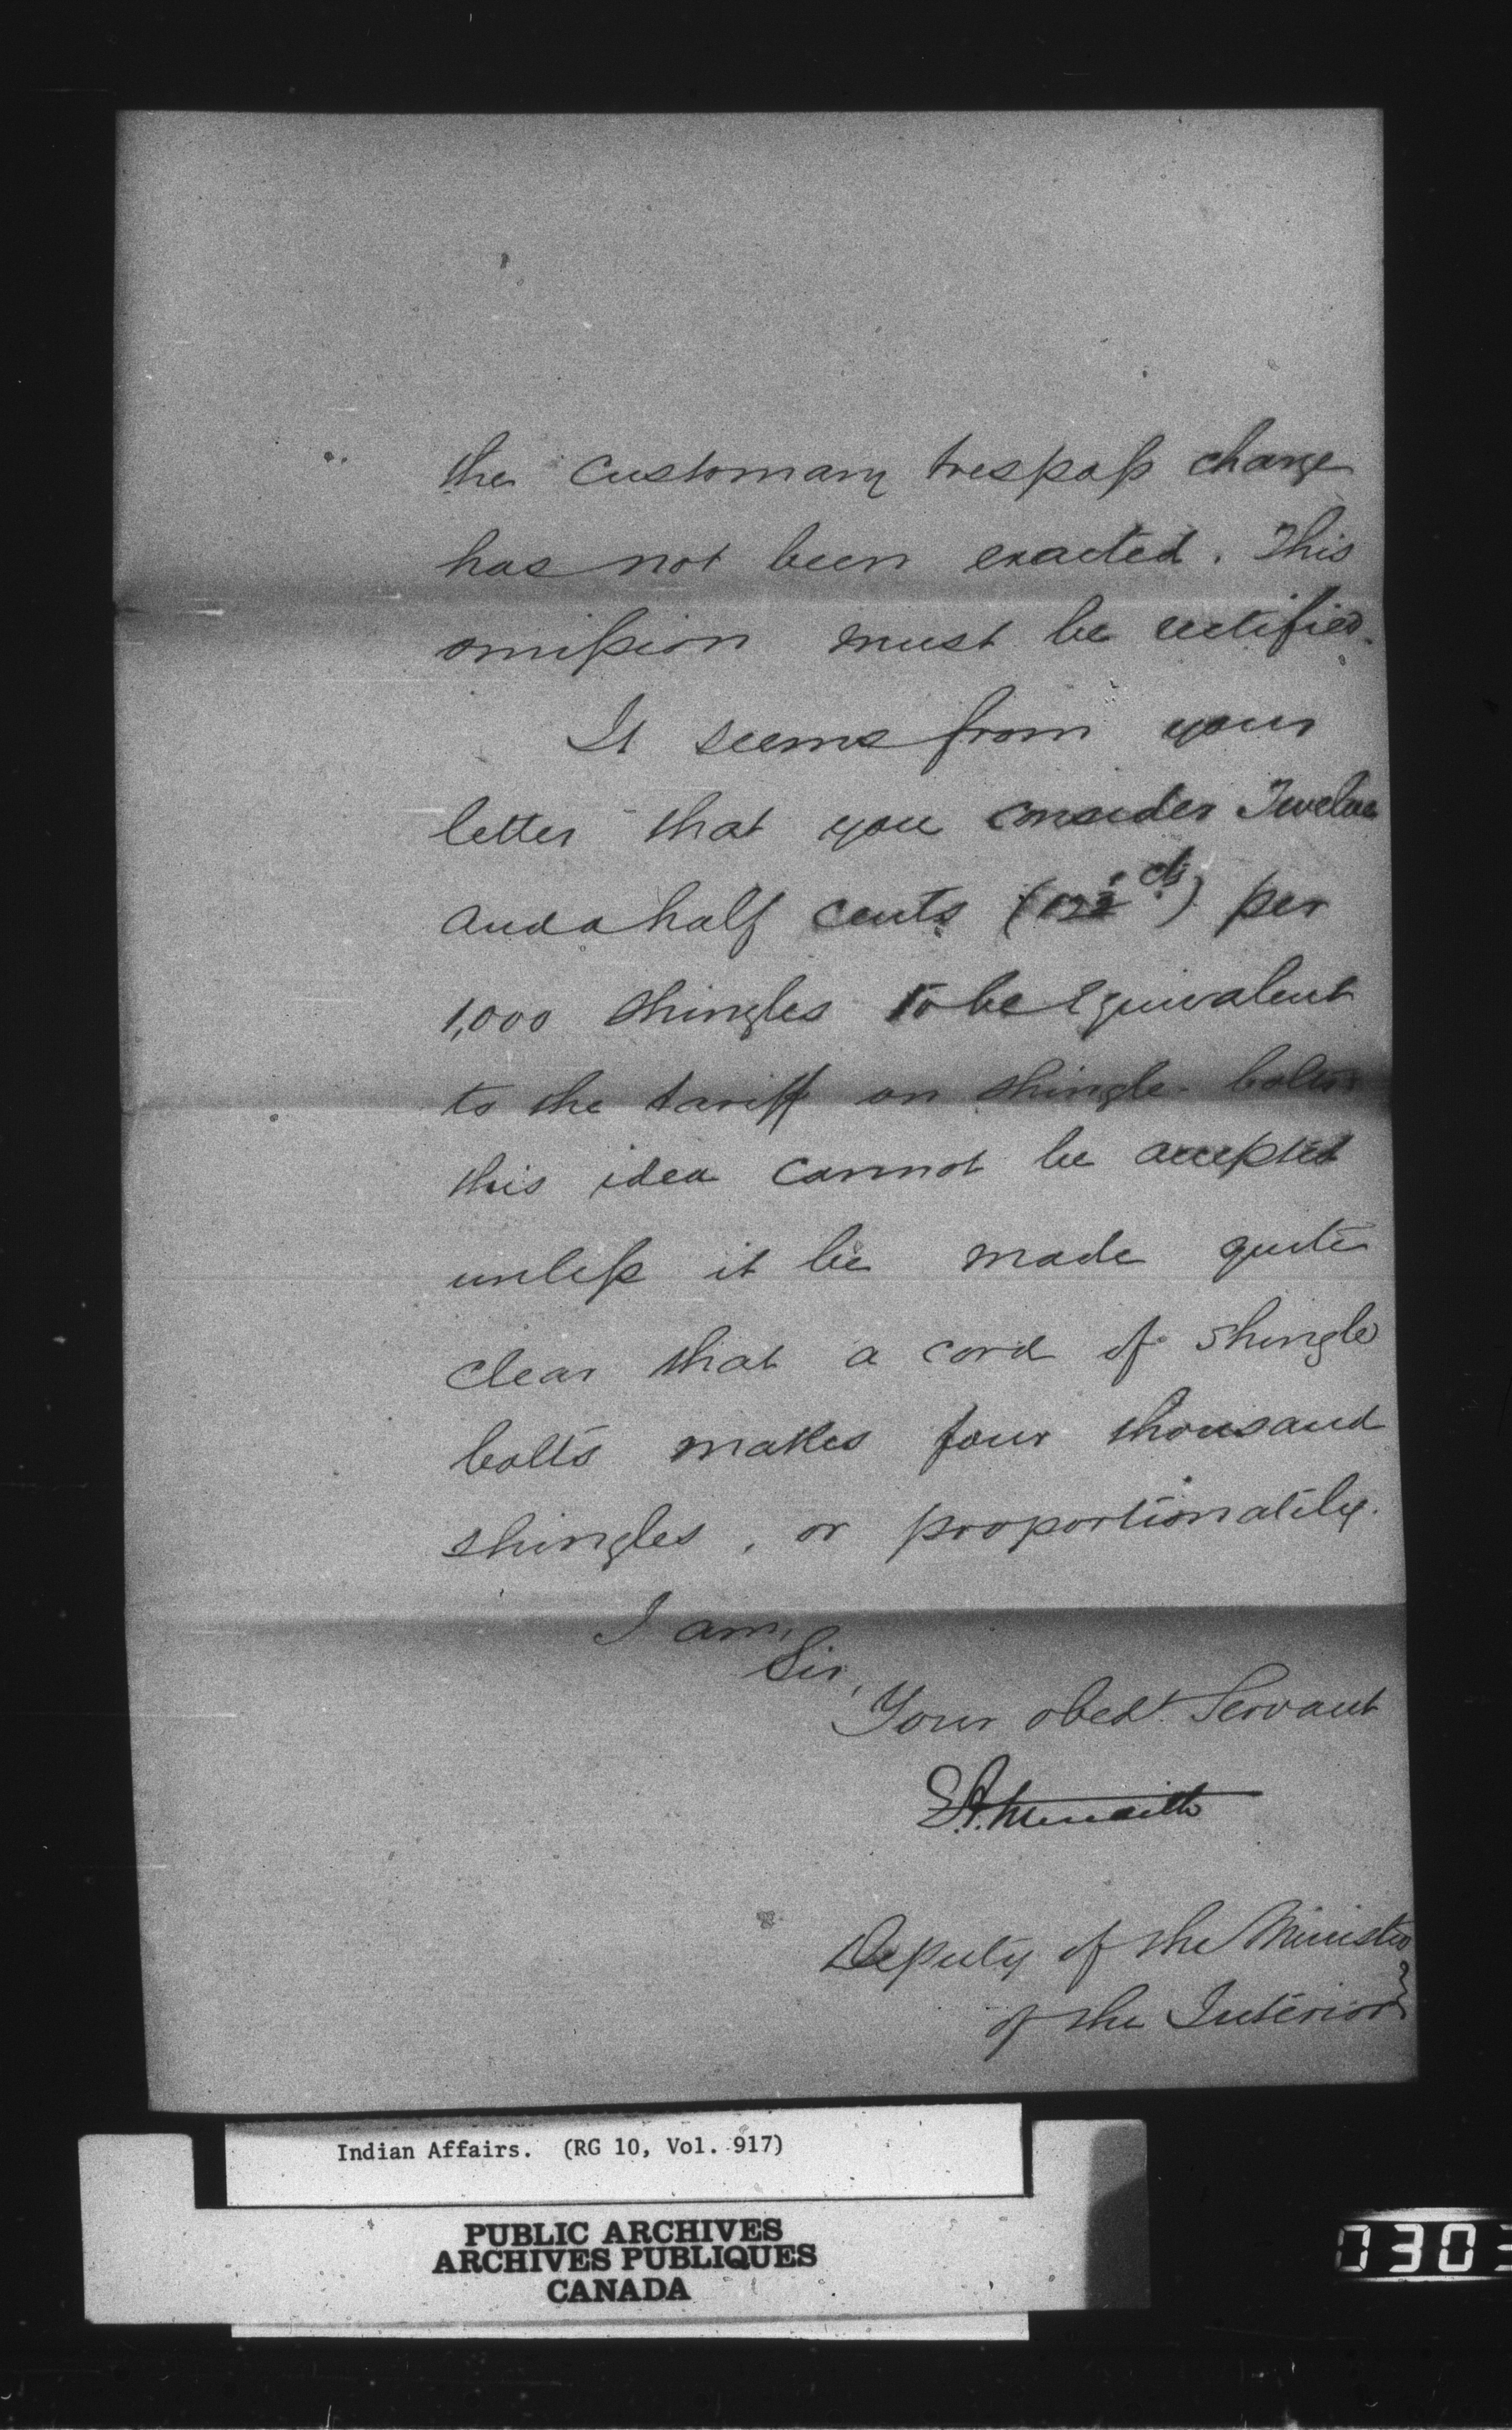 the customary trespass charge
has not been exacted. This
omission must be rectified.
It seems from your
letter that you consider Twelve
and a half cents (12½ cts) per
1,000 shingles to be equivalent
to the tariff on shingle-bolts
this idea cannot be accepted
unless it be made quite
clear that a cord of shingle
bolts makes four thousand
shingles, or proportionately.
I am,
Sir,
Your obedt. Servant
E.A. Meredith
Deputy of the Minister
of the Interior
Indian Affairs. (RG 10, Vol. 917)
PUBLIC ARCHIVES
ARCHIVES PUBLIQUES
CANADA
0303